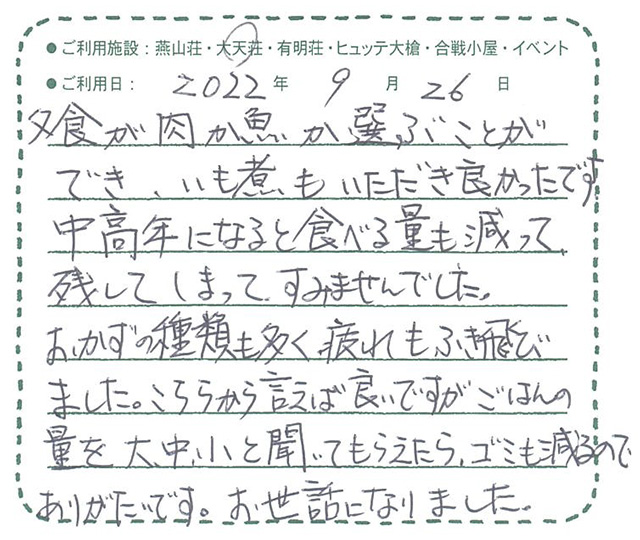 ●ご利用施設：燕山荘・大天荘・有明荘・ヒュッテ大槍・合戦小屋・イベント
●ご利用日： 2022 年 9 月 26 日
夕食が肉か魚か選ぶことが
でき、いも煮もいただき良かったです。
中高年になると食べる量も減って
残してしまって、すみませんでした。
おかずの種類も多く疲れもふき飛び
ました。こちらから言えば良いですがごはんの
量を大、中、小と聞いてもらえたら、ゴミも減るので
ありがたいです。お世話になりました。